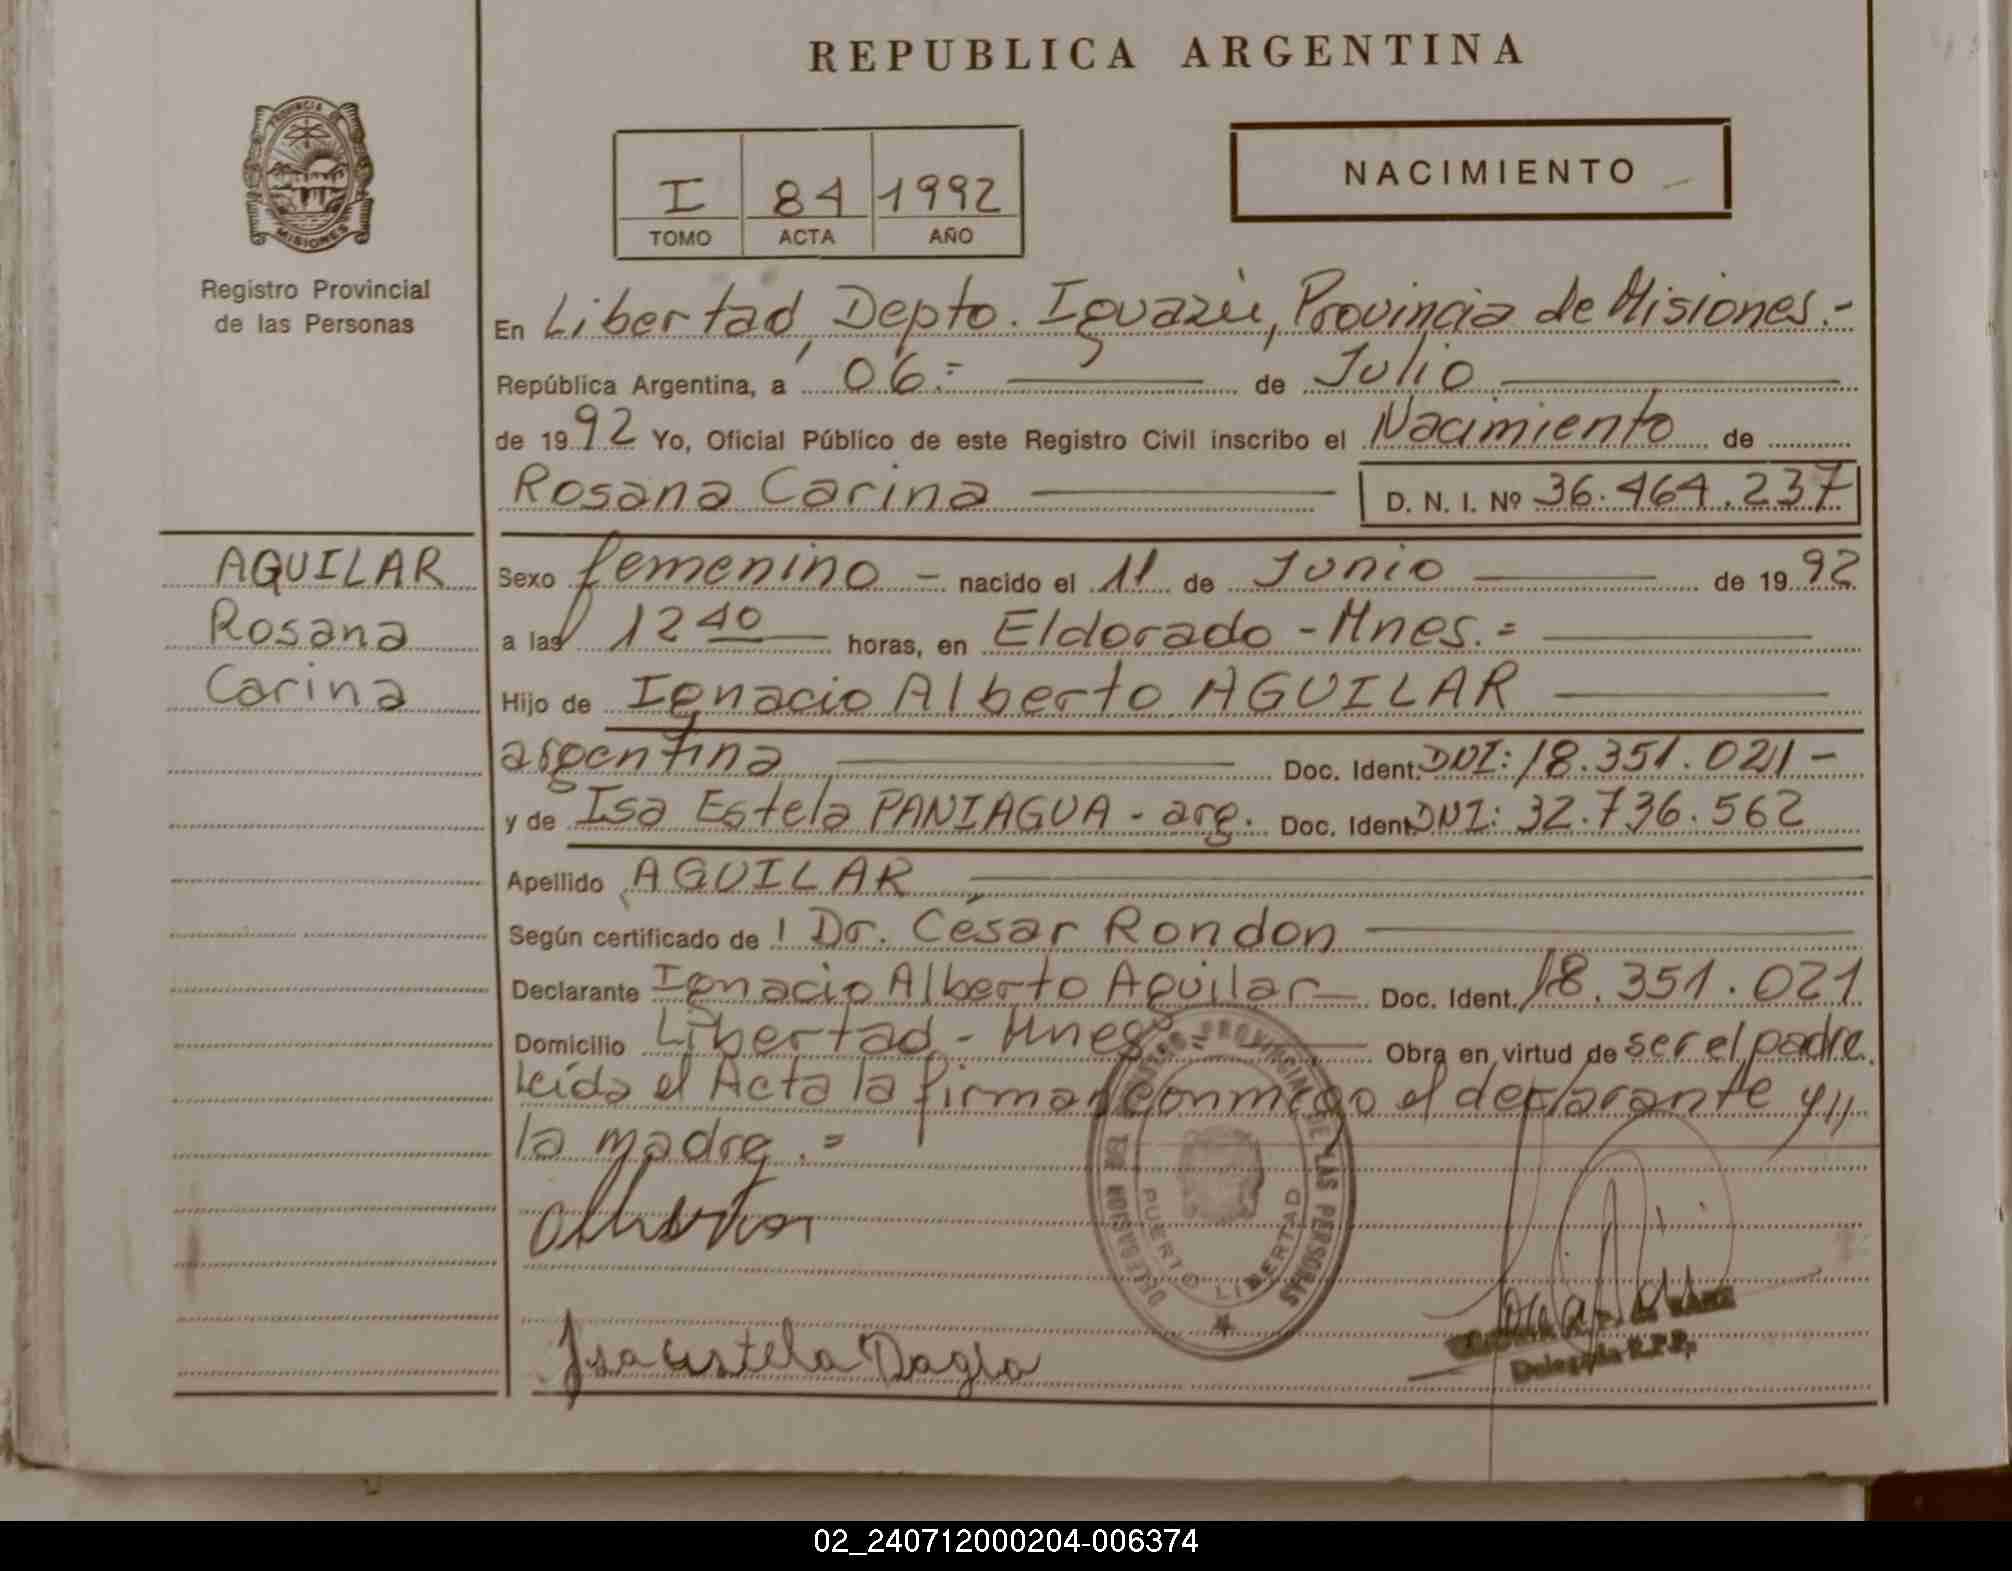 REPUBLICA ARGENTINA
PROVINCIA
MISIONES
Registro Provincial
de las Personas
I 84 1992
TOMO ACTA AÑO
NACIMIENTO
En Libertad, Depto. Iguazú, Provincia de Misiones.-
República Argentina, a 06.= de Julio
de 1992 Yo, Oficial Público de este Registro Civil inscribo el Nacimiento de
Rosana Carina D. N. I. Nº 36.464.237
AGUILAR
Rosana
Carina
Sexo femenino - nacido el 11 de Junio de 1992
a las 12 40 horas, en Eldorado - Mnes.=
Hijo de Ignacio Alberto AGUILAR
argentina Doc. Ident. DNI: 18.351.021 -
y de Isa Estela PANIAGUA - arg. Doc. Ident. DNI: 32.736.562
Apellido AGUILAR
Según certificado de Dr. César Rondon
Declarante Ignacio Alberto Aguilar Doc. Ident. 18.351.021
Domicilio Libertad - Mnes Obra en virtud de ser el padre.
Leída el Acta la firman conmigo el declarante y
la madre.=
REGISTRO PROVINCIAL DE LAS PERSONAS
DELEGACION
PUERTO LIBERTAD
Isa estela
Delegada R.P.P.
02_240712000204-006374